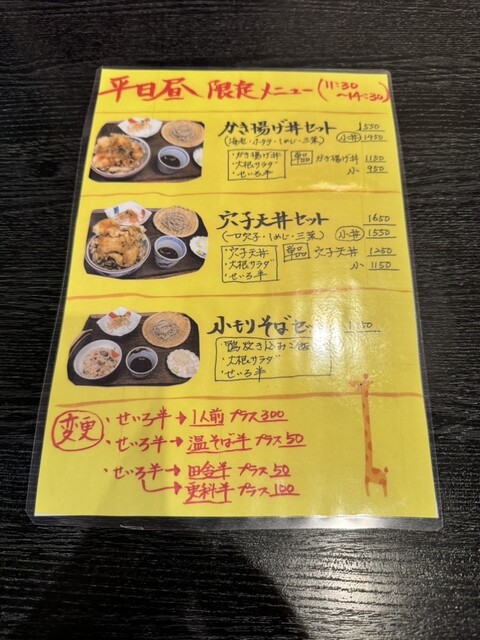 平日昼 限定メニュー(11:30
～14:30)
かき揚げ丼セット 1550
(海老・ホタテ・しめじ・三葉) 小丼 1450
・かき揚げ丼
・大根サラダ
・せいろ半
単品 かき揚げ丼 1150
小 950
穴子天丼セット 1650
(一口穴子・しめじ・三葉) 小丼 1550
・穴子天丼
・大根サラダ
・せいろ半
単品 穴子天丼 1250
小 1150
小もりそばセット
・鶏炊き込みご飯
・大根サラダ
・せいろ半
変更
・せいろ半→1人前 プラス300
・せいろ半→温そば半 プラス50
・せいろ半→田舎半 プラス50
→更科半 プラス100